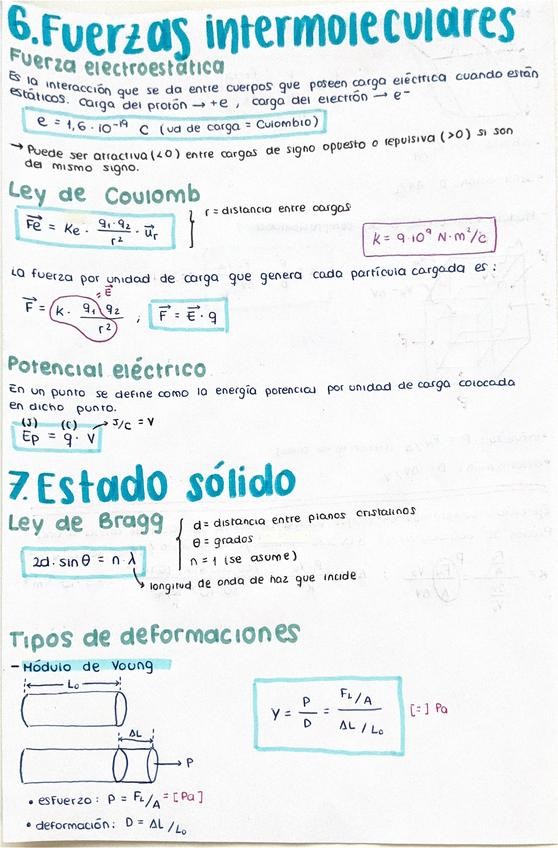 6. Fuerzas intermoleculares
Fuerza electroestática
Es la interacción que se da entre cuerpos que poseen carga eléctrica cuando están
estáticos. Carga del protón → +e , carga del electrón → e⁻
e = 1,6 · 10⁻¹⁹ C (ud de carga = Culombio)
→ Puede ser atractiva (<0) entre cargas de signo opuesto o repulsiva (>0) si son
del mismo signo.
Ley de Coulomb
F⃗e = Ke · q₁·q₂ / r² · u⃗r } r = distancia entre cargas
K = 9·10⁹ N·m²/c
La fuerza por unidad de carga que genera cada partícula cargada es:
= E⃗
F⃗ = K · q₁ q₂ / r² ; F⃗ = E⃗ · q
Potencial eléctrico
En un punto se define como la energía potencial por unidad de carga colocada
en dicho punto.
(J) (C) → J/C = V
Ep = q · V
7. Estado sólido
Ley de Bragg { d = distancia entre planos cristalinos
θ = grados
2d · sin θ = n · λ
n = 1 (se asume)
longitud de onda de haz que incide
Tipos de deformaciones
- Módulo de Young
L₀
Y = P / D = F_L/A / ΔL / L₀ [=] Pa
ΔL
P
• esfuerzo: P = F_L/A = [Pa]
• deformación: D = ΔL / L₀